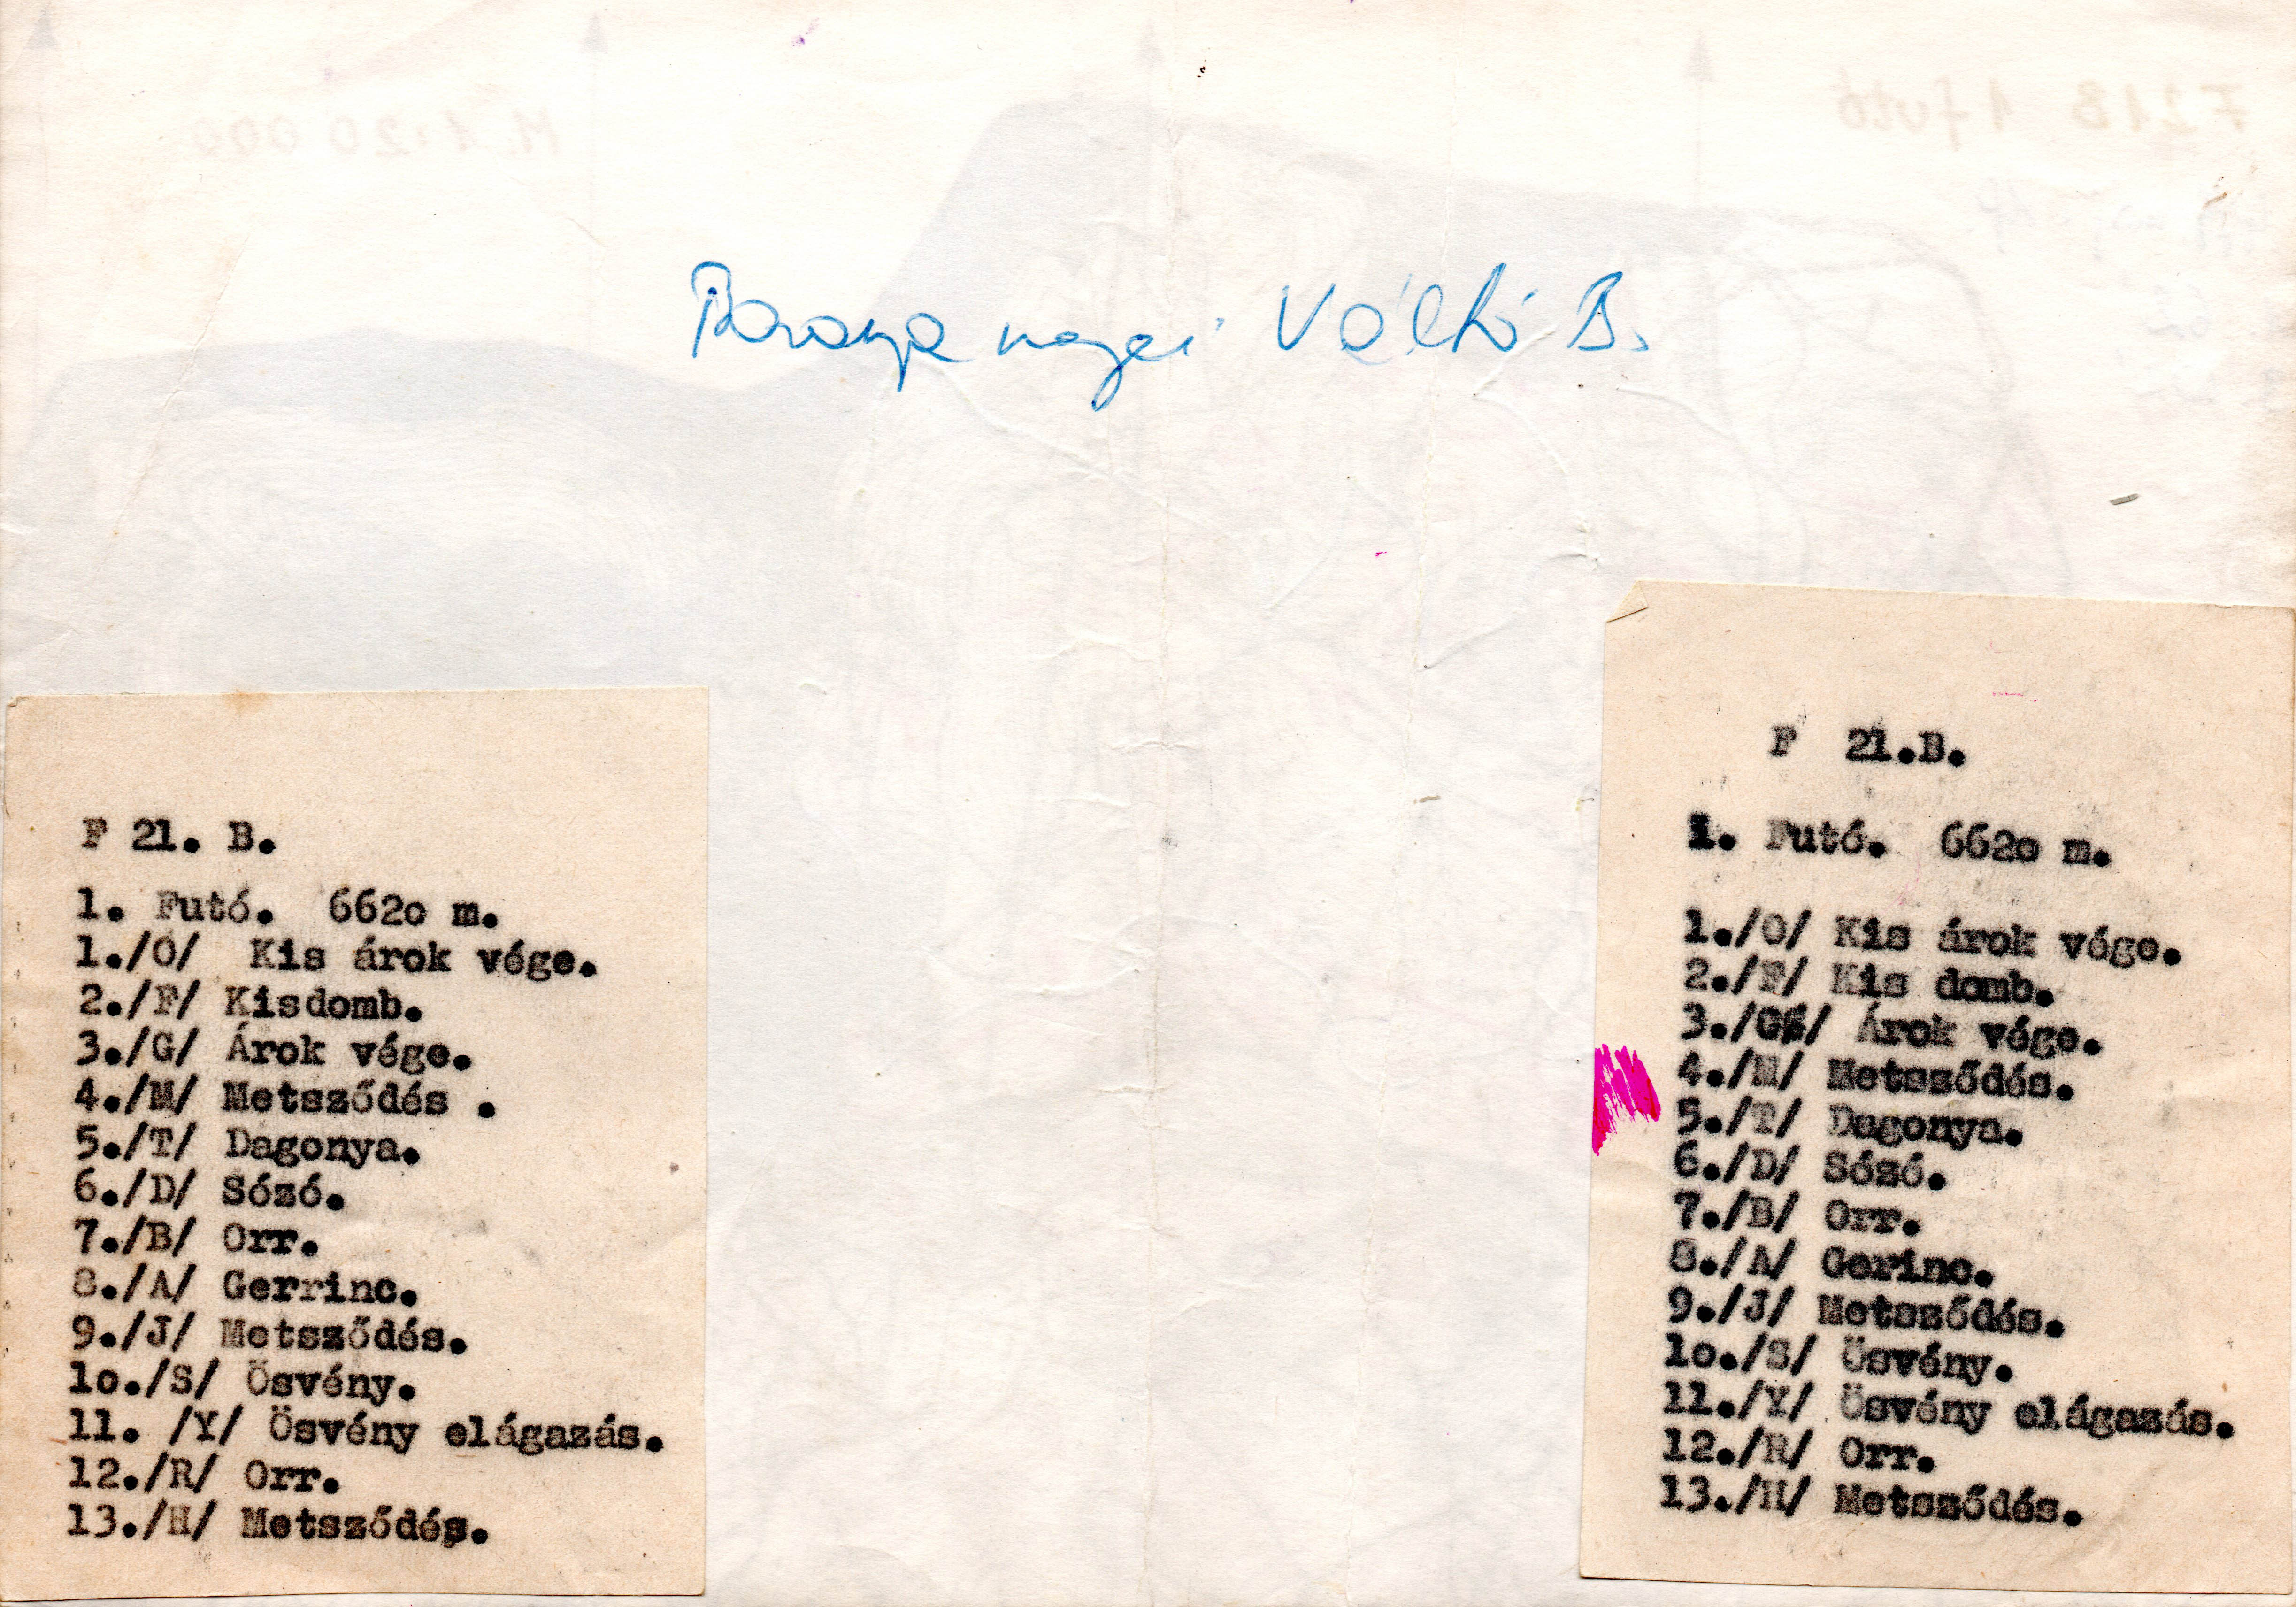 Baranya megei Váltó B.
F 21. B.
1. Futó. 662o m.
1./O/ Kis árok vége.
2./F/ Kisdomb.
3./G/ Árok vége.
4./M/ Metsződés .
5./T/ Dagonya.
6./D/ Sózó.
7./B/ Orr.
8./A/ Gerrinc.
9./J/ Metsződés.
lo./S/ Ösvény.
11. /Y/ Ösvény elágazás.
12./R/ Orr.
13./H/ Metsződés.
F 21.B.
1. Futó. 662o m.
1./O/ Kis árok vége.
2./F/ Kis domb.
3./G/ Árok vége.
4./M/ Metsződés.
5./T/ Dagonya.
6./D/ Sózó.
7./B/ Orr.
8./A/ Gerinc.
9./J/ Metsződés.
lo./S/ Ösvény.
11./Y/ Ösvény elágazás.
12./R/ Orr.
13./H/ Metsződés.